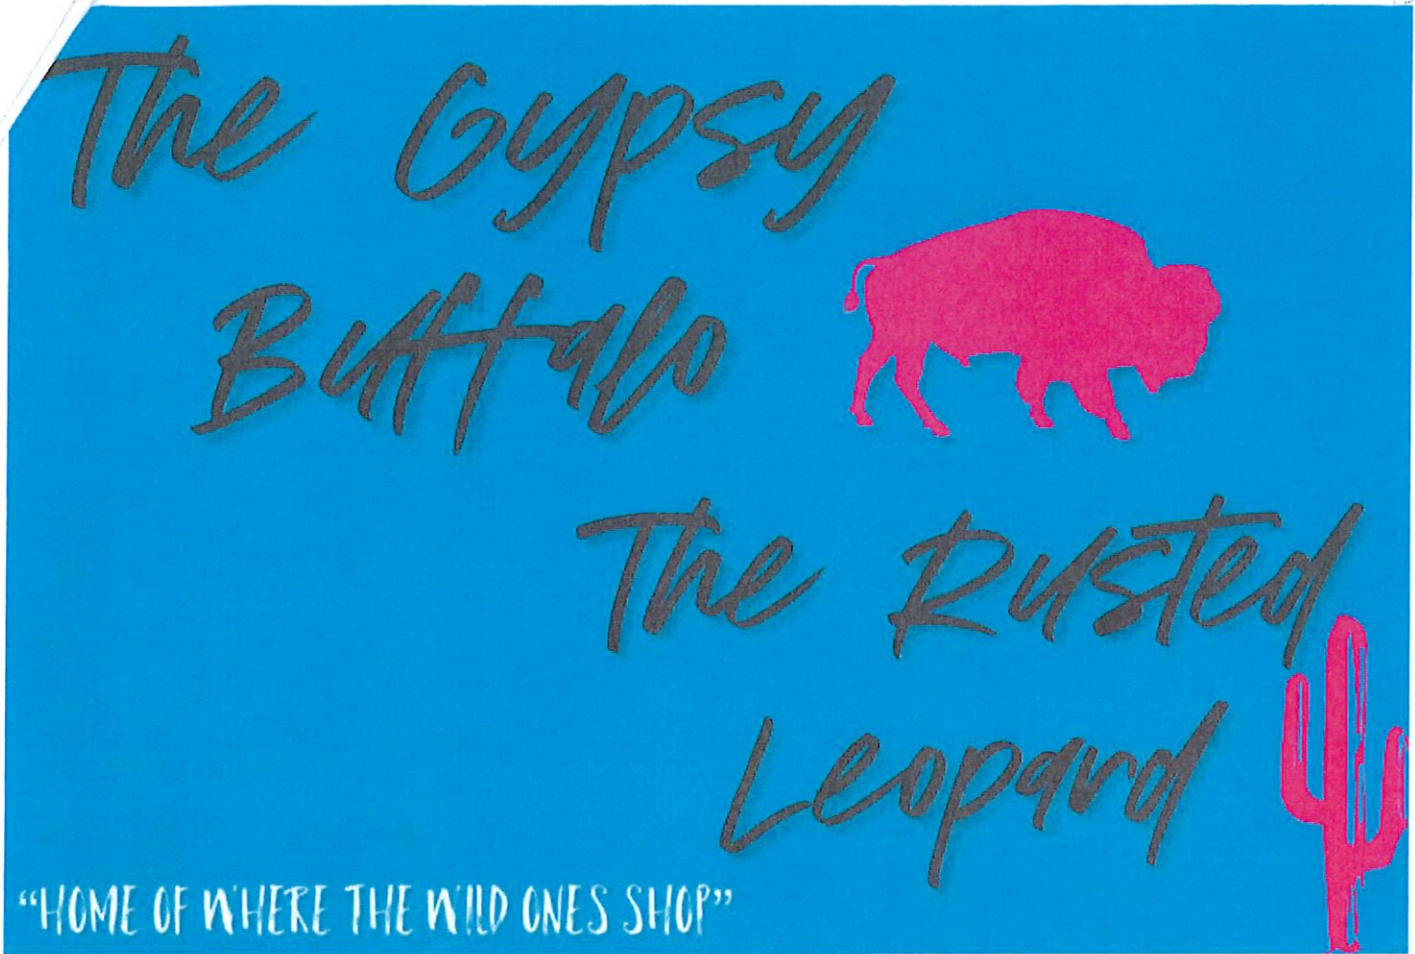 The Gypsy
Buffalo
The Rusted
Leopard
“HOME OF WHERE THE WILD ONES SHOP”